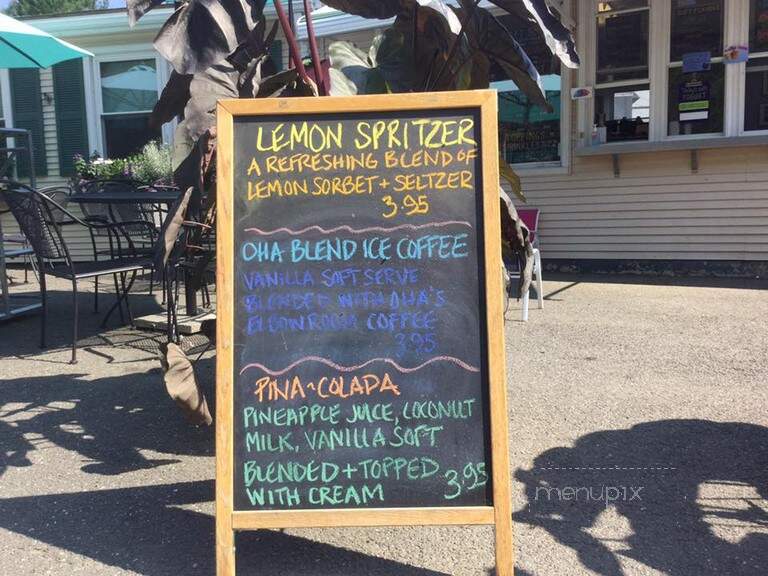 LEMON SPRITZER
A REFRESHING BLEND OF
LEMON SORBET + SELTZER
3.95
OHA BLEND ICE COFFEE
VANILLA SOFT SERVE
BLENDED WITH OHA'S
ELBOW ROOM COFFEE
3.95
PINA~COLADA
PINEAPPLE JUICE, COCONUT
MILK, VANILLA SOFT
BLENDED + TOPPED
WITH CREAM 3.95
menupix